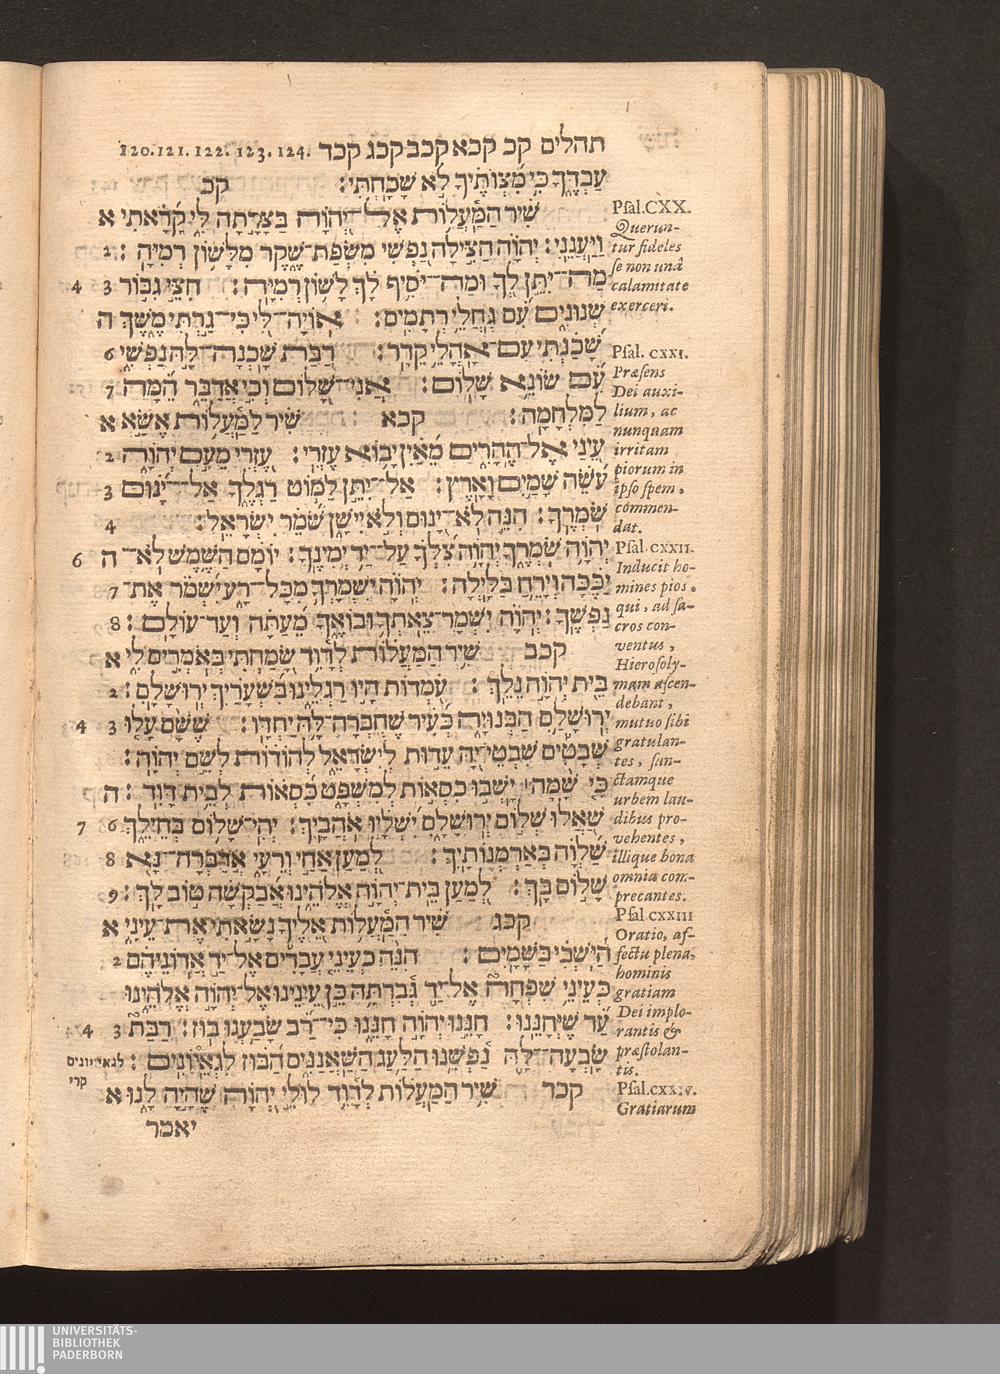 תהלים קכ קכא קכב קכג קכד 120.121.122.123.124.
עַבְדֶּךָ כִּי מִצְוֺתֶיךָ לֹא שָׁכָחְתִּי׃
קכ
שִׁיר הַמַּעֲלוֹת אֶל־יְהוָה בַּצָּרָתָה לִּי קָרָאתִי א
וַיַּעֲנֵנִי׃ יְהוָה הַצִּילָה נַפְשִׁי מִשְּׂפַת־שֶׁקֶר מִלָּשׁוֹן רְמִיָּה׃ 2
מַה־יִּתֵּן לְךָ וּמַה־יֹּסִיף לָךְ לָשׁוֹן רְמִיָּה׃ חִצֵּי גִבּוֹר 3 4
שְׁנוּנִים עִם גַּחֲלֵי רְתָמִים׃ אוֹיָה־לִי כִּי־גַרְתִּי מֶשֶׁךְ ה
שָׁכַנְתִּי עִם־אָהֳלֵי קֵדָר׃ רַבַּת שָׁכְנָה־לָּהּ נַפְשִׁי 6
עִם שׂוֹנֵא שָׁלוֹם׃ אֲנִי־שָׁלוֹם וְכִי אֲדַבֵּר הֵמָּה 7
לַמִּלְחָמָה׃ קכא שִׁיר לַמַּעֲלוֹת אֶשָּׂא א
עֵינַי אֶל־הֶהָרִים מֵאַיִן יָבוֹא עֶזְרִי׃ עֶזְרִי מֵעִם יְהוָה 2
עֹשֵׂה שָׁמַיִם וָאָרֶץ׃ אַל־יִתֵּן לַמּוֹט רַגְלֶךָ אַל־יָנוּם 3
שֹׁמְרֶךָ׃ הִנֵּה לֹא־יָנוּם וְלֹא יִישָׁן שֹׁמֵר יִשְׂרָאֵל׃ 4
יְהוָה שֹׁמְרֶךָ יְהוָה צִלְּךָ עַל־יַד יְמִינֶךָ׃ יוֹמָם הַשֶּׁמֶשׁ לֹא־ ה 6
יַכֶּכָּה וְיָרֵחַ בַּלָּיְלָה׃ יְהוָה יִשְׁמָרְךָ מִכָּל־רָע יִשְׁמֹר אֶת־ 7
נַפְשֶׁךָ׃ יְהוָה יִשְׁמָר־צֵאתְךָ וּבוֹאֶךָ מֵעַתָּה וְעַד־עוֹלָם׃ 8
קכב שִׁיר הַמַּעֲלוֹת לְדָוִד שָׂמַחְתִּי בְּאֹמְרִים לִי א
בֵּית יְהוָה נֵלֵךְ׃ עֹמְדוֹת הָיוּ רַגְלֵינוּ בִּשְׁעָרַיִךְ יְרוּשָׁלִָם׃ 2
יְרוּשָׁלִַם הַבְּנוּיָה כְּעִיר שֶׁחֻבְּרָה־לָּהּ יַחְדָּו׃ שֶׁשָּׁם עָלוּ 3 4
שְׁבָטִים שִׁבְטֵי־יָהּ עֵדוּת לְיִשְׂרָאֵל לְהוֹדוֹת לְשֵׁם יְהוָה׃
כִּי שָׁמָּה׀ יָשְׁבוּ כִסְאוֹת לְמִשְׁפָּט כִּסְאוֹת לְבֵית דָּוִד׃ ה
שַׁאֲלוּ שְׁלוֹם יְרוּשָׁלִָם יִשְׁלָיוּ אֹהֲבָיִךְ׃ יְהִי־שָׁלוֹם בְּחֵילֵךְ 6 7
שַׁלְוָה בְּאַרְמְנוֹתָיִךְ׃ לְמַעַן אַחַי וְרֵעָי אֲדַבְּרָה־נָּא 8
שָׁלוֹם בָּךְ׃ לְמַעַן בֵּית־יְהוָה אֱלֹהֵינוּ אֲבַקְשָׁה טוֹב לָךְ׃ 9
קכג שִׁיר הַמַּעֲלוֹת אֵלֶיךָ נָשָׂאתִי אֶת־עֵינַי א
הַיֹּשְׁבִי בַּשָּׁמָיִם׃ הִנֵּה כְעֵינֵי עֲבָדִים אֶל־יַד אֲדוֹנֵיהֶם 2
כְּעֵינֵי שִׁפְחָה אֶל־יַד גְּבִרְתָּהּ כֵּן עֵינֵינוּ אֶל־יְהוָה אֱלֹהֵינוּ
עַד שֶׁיְּחָנֵּנוּ׃ חָנֵּנוּ יְהוָה חָנֵּנוּ כִּי־רַב שָׂבַעְנוּ בוּז׃ רַבַּת 3 4
שָׂבְעָה־לָּהּ נַפְשֵׁנוּ הַלַּעַג הַשַּׁאֲנַנִּים הַבּוּז לִגְאֵיוֹנִים׃
לגאי יונים
קרי
קכד שִׁיר הַמַּעֲלוֹת לְדָוִד לוּלֵי יְהוָה שֶׁהָיָה לָנוּ א
יאמר
Psal.CXX.
Querun-
tur fideles
se non unâ
calamitate
exerceri.
Psal. CXXI.
Præsens
Dei auxi-
lium, ac
nunquam
irritam
piorum in
ipso spem,
commen-
dat.
Psal.CXXII.
Inducit ho-
mines pios,
qui, ad sa-
cros con-
ventus,
Hierosoly-
mam ascen-
debant,
mutuo sibi
gratulan-
tes, san-
ctamque
urbem lau-
dibus pro-
vehentes,
illique bona
omnia com-
precantes.
Psal.CXXIII
Oratio, af-
fectu plena,
hominis
gratiam
Dei implo-
rantis &
præstolan-
tis.
Psal.CXXIV.
Gratiarum
UNIVERSITÄTS-
BIBLIOTHEK
PADERBORN